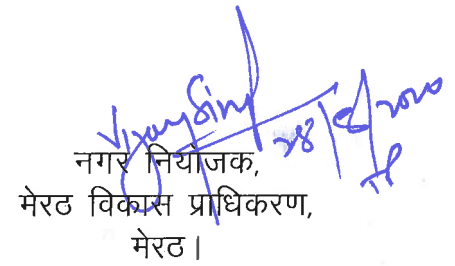 Vijay Singh
28/8/2020
TP
नगर नियोजक,
मेरठ विकास प्राधिकरण,
मेरठ।